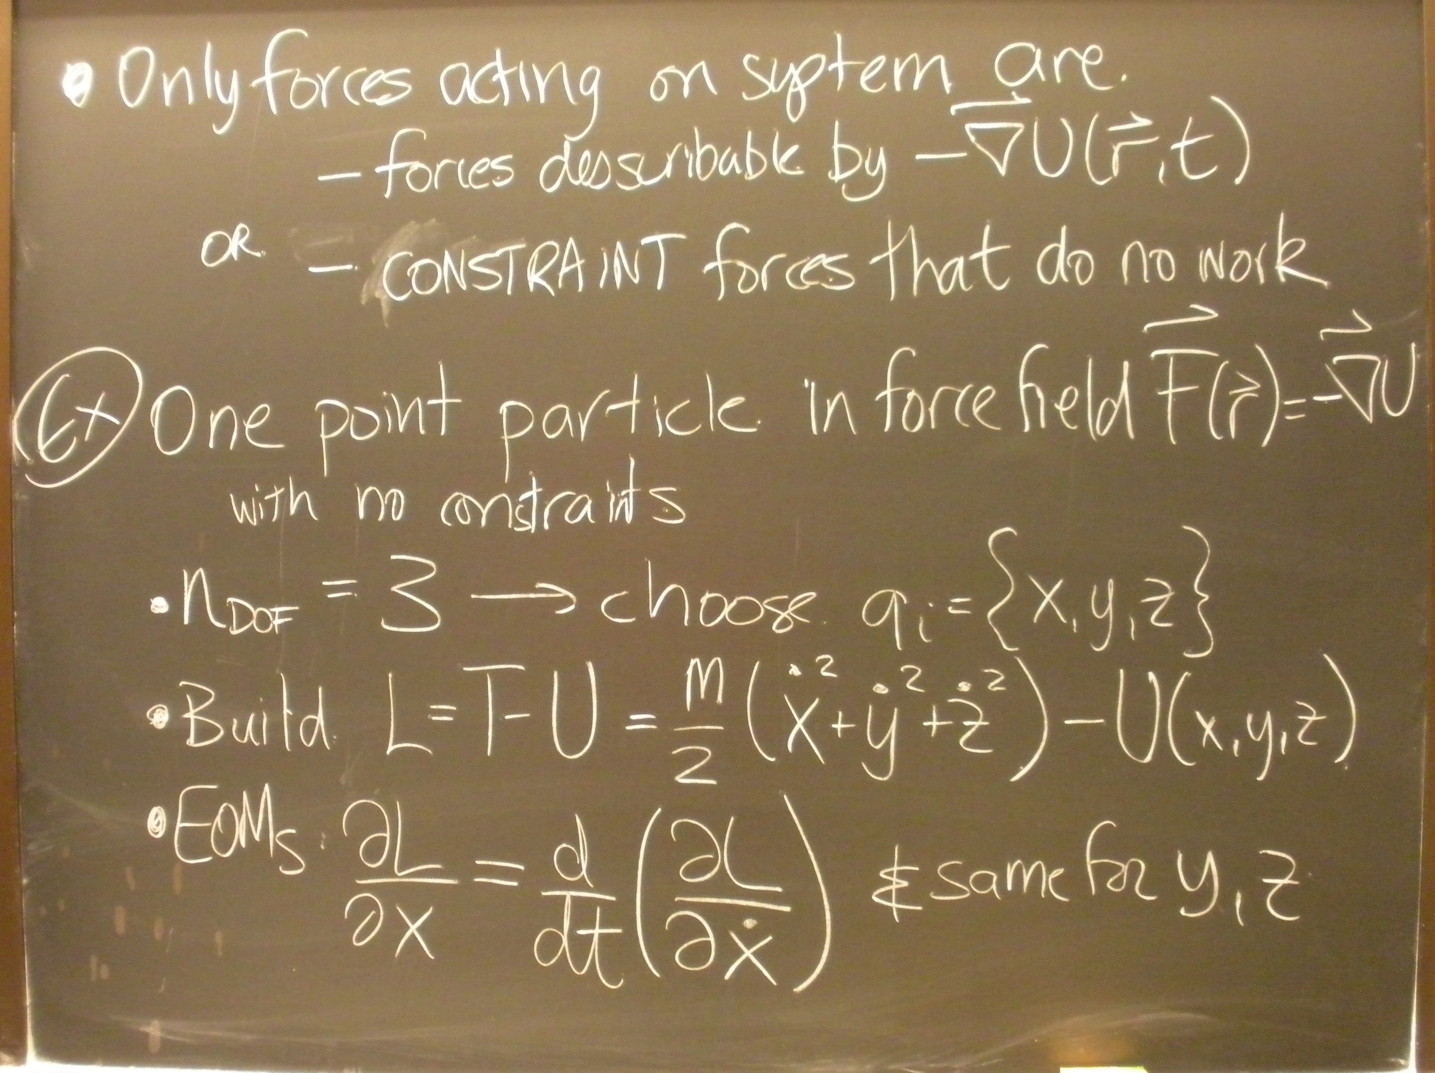 • Only forces acting on system are.
– forces describable by –∇⃗U(r⃗,t)
OR – CONSTRAINT forces that do no work
Ex One point particle in force field F⃗(r⃗)=–∇⃗U
with no constraints
• n_DOF = 3 → choose q_i = {x,y,z}
• Build L = T-U = m/2 (ẋ² + ẏ² + ż²) – U(x,y,z)
• EOMs: ∂L/∂x = d/dt (∂L/∂ẋ) & same for y,z